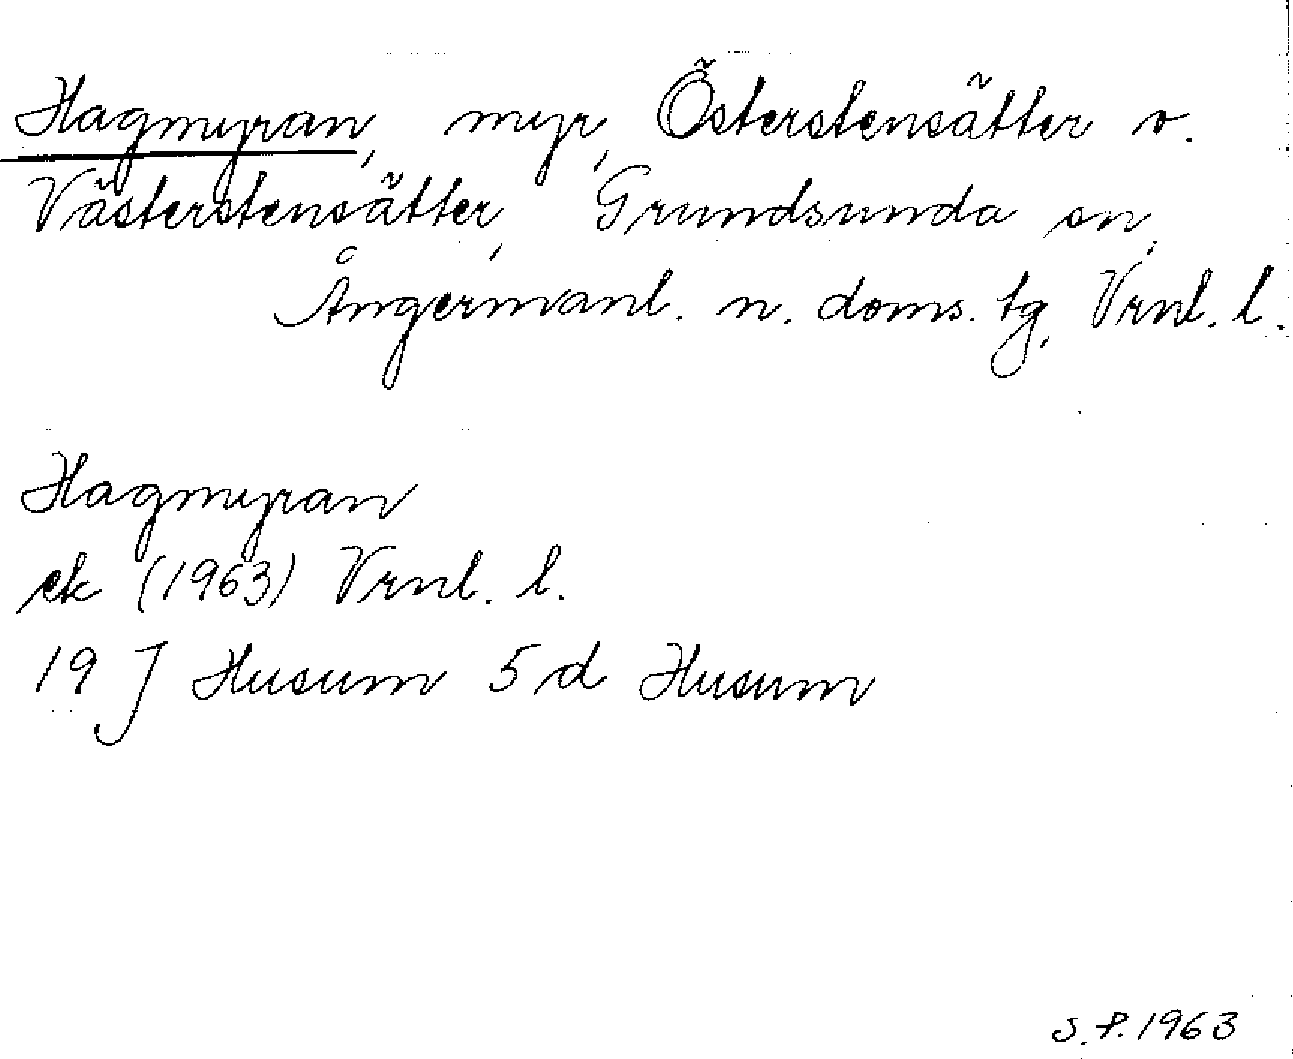 Hagmyran, myr, Österstensätter o.
Västerstensätter, Grundsunda sn,
Ångermanl. n. doms. tg, Vrnl. l.
Hagmyran
ek (1963) Vrnl. l.
19 J Husum 5 d Husum
S.P. 1963